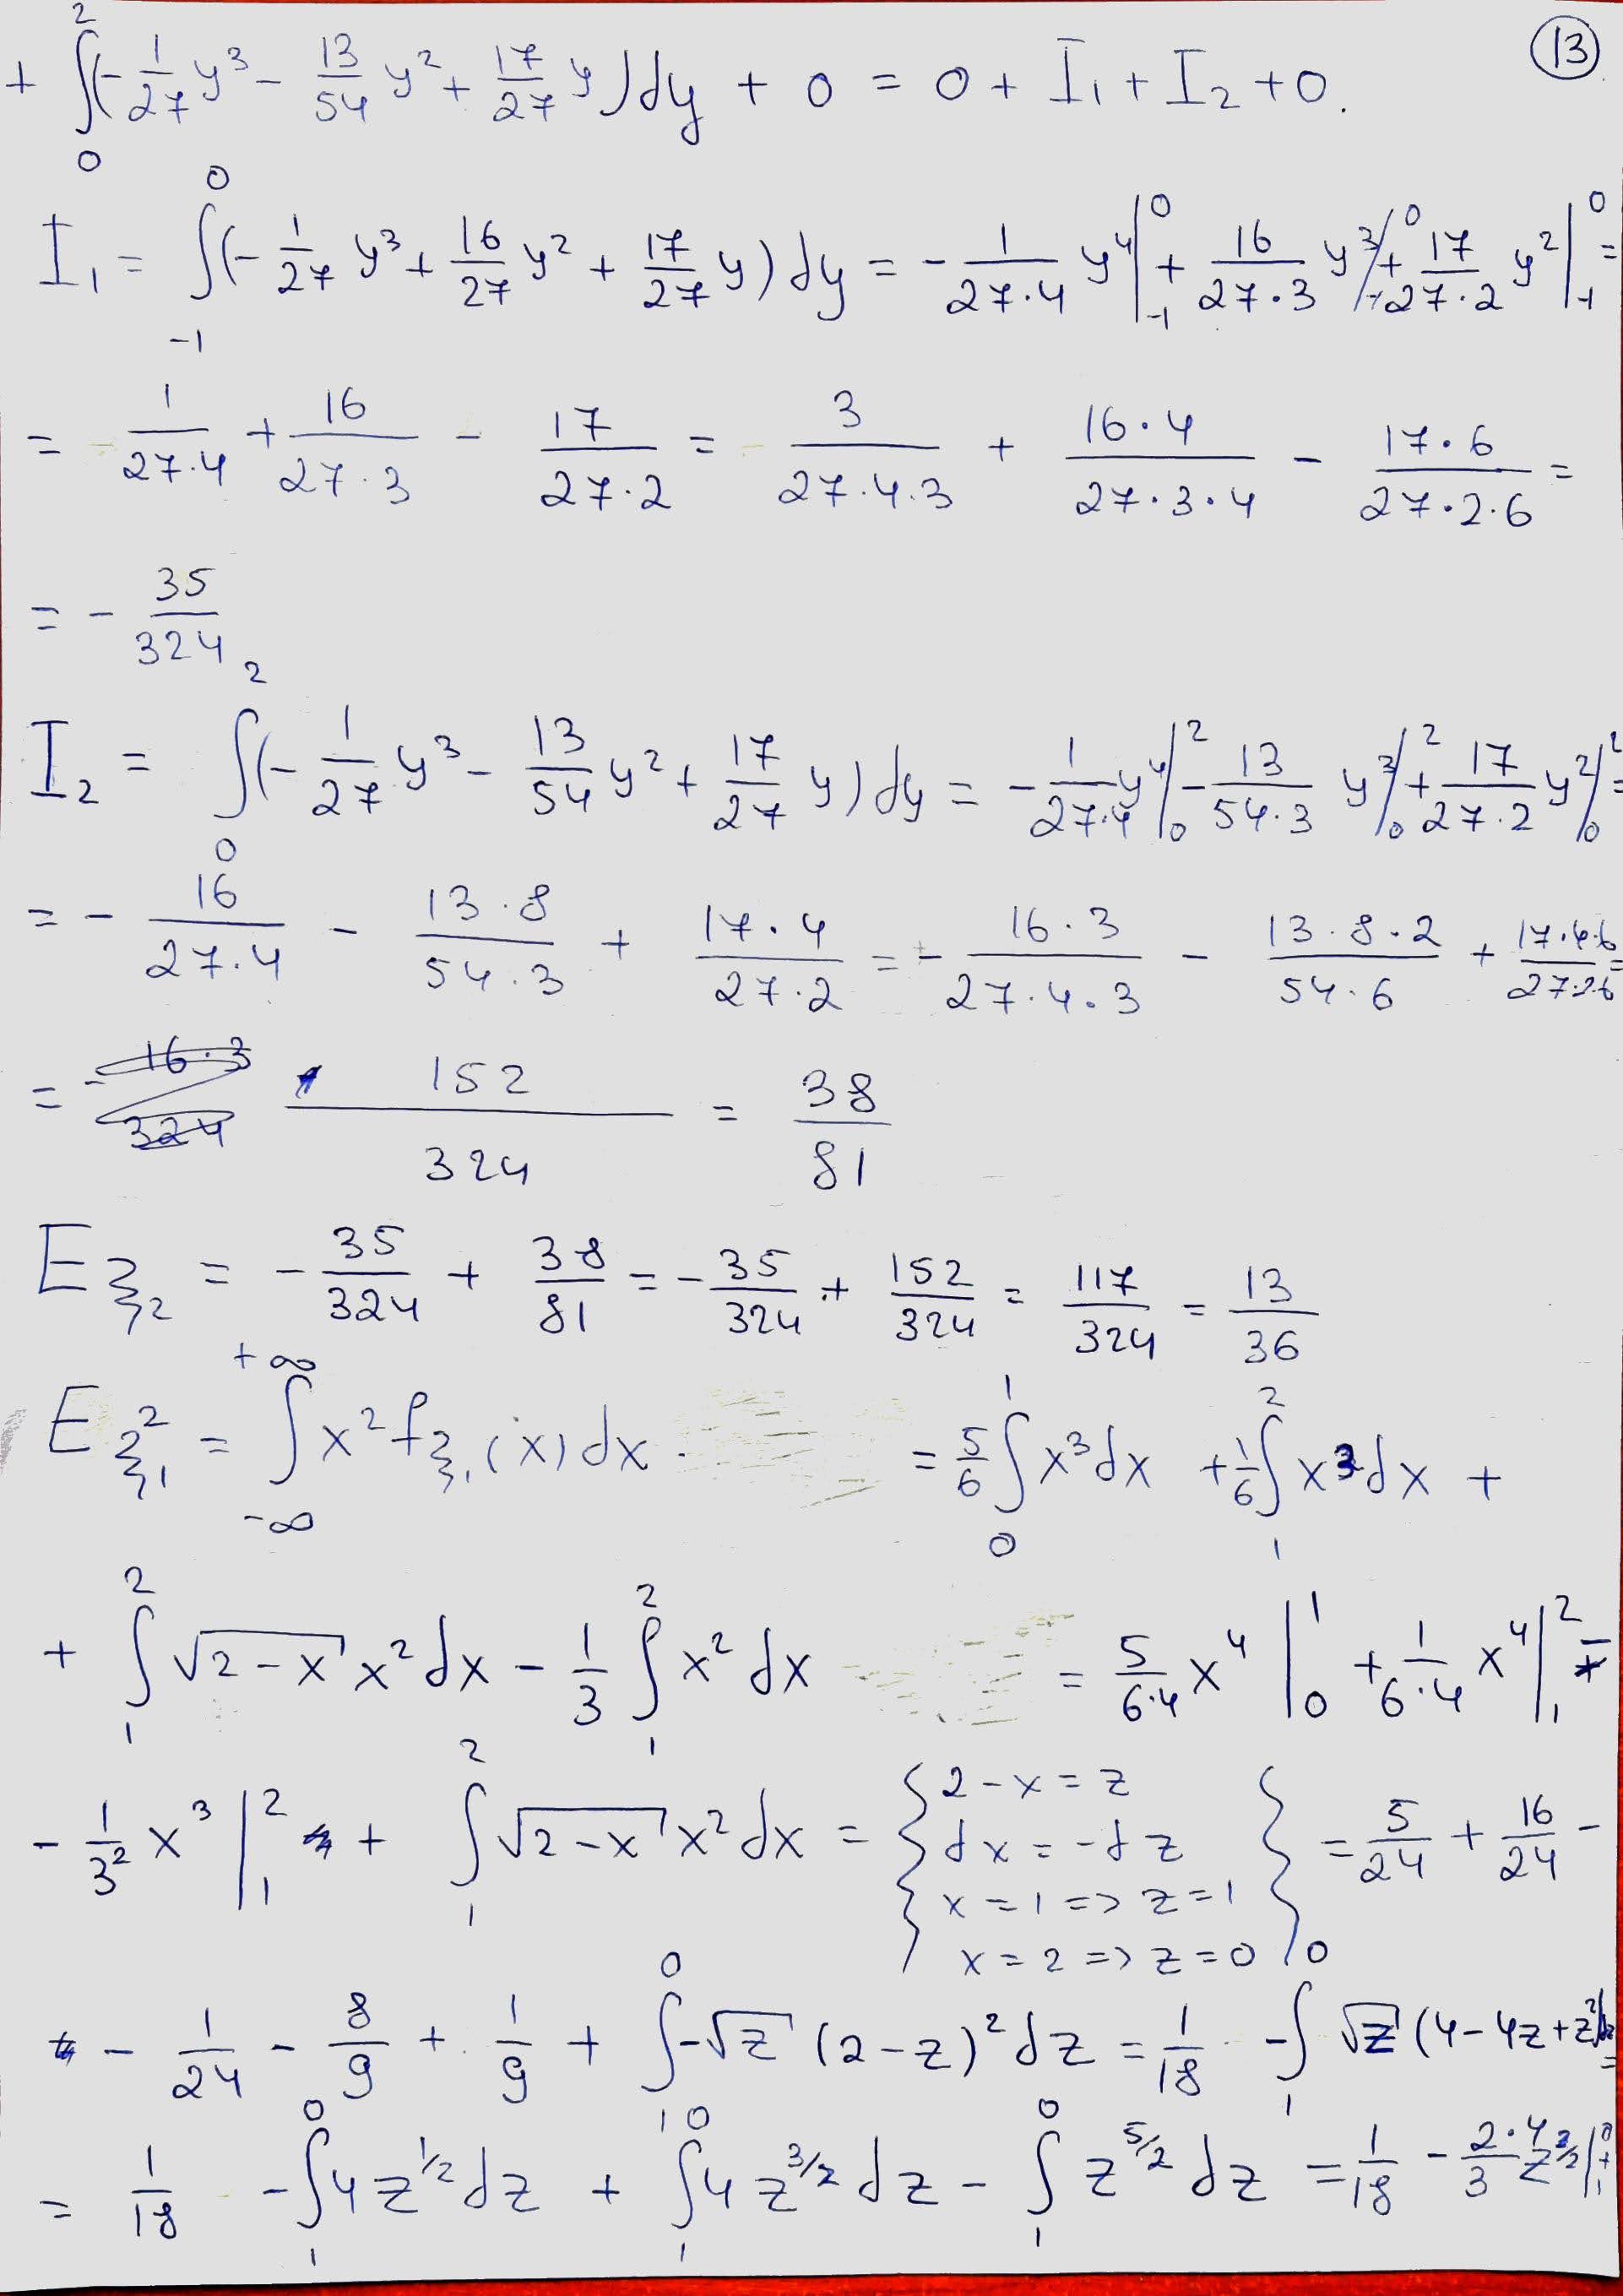 (13)
+ ∫₀² (- 1/27 y³ - 13/54 y² + 17/27 y) dy + 0 = 0 + I₁ + I₂ + 0.
I₁ = ∫₋₁⁰ (- 1/27 y³ + 16/27 y² + 17/27 y) dy = - 1/(27·4) y⁴ |₋₁⁰ + 16/(27·3) y³ |₋₁⁰ + 17/(27·2) y² |₋₁⁰ =
= 1/(27·4) + 16/(27·3) - 17/(27·2) = 3/(27·4·3) + (16·4)/(27·3·4) - (17·6)/(27·2·6) =
= - 35/324
I₂ = ∫₀² (- 1/27 y³ - 13/54 y² + 17/27 y) dy = - 1/(27·4) y⁴ |₀² - 13/(54·3) y³ |₀² + 17/(27·2) y² |₀² =
= - 16/(27·4) - (13·8)/(54·3) + (17·4)/(27·2) = - (16·3)/(27·4·3) - (13·8·2)/(54·6) + (17·4·6)/(27·2·6) =
= 152/324 = 38/81
Eξ₂ = - 35/324 + 38/81 = - 35/324 + 152/324 = 117/324 = 13/36
Eξ₁² = ∫₋∞⁺∞ x² f_ξ₁(x) dx = 5/6 ∫₀¹ x³ dx + 1/6 ∫₁² x³ dx +
+ ∫₁² √(2-x) x² dx - 1/3 ∫₁² x² dx = 5/(6·4) x⁴ |₀¹ + 1/(6·4) x⁴ |₁² -
- 1/3² x³ |₁² + ∫₁² √(2-x) x² dx = { 2-x = z
dx = -dz
x = 1 => z = 1
x = 2 => z = 0 } = 5/24 + 16/24 -
- 1/24 - 8/9 + 1/9 + ∫₁⁰ -√z (2-z)² dz = 1/18 - ∫₁⁰ √z (4-4z+z²) dz =
= 1/18 - ∫₁⁰ 4 z^(1/2) dz + ∫₁⁰ 4 z^(3/2) dz - ∫₁⁰ z^(5/2) dz = 1/18 - (2·4)/3 z^(3/2) |₁⁰ +